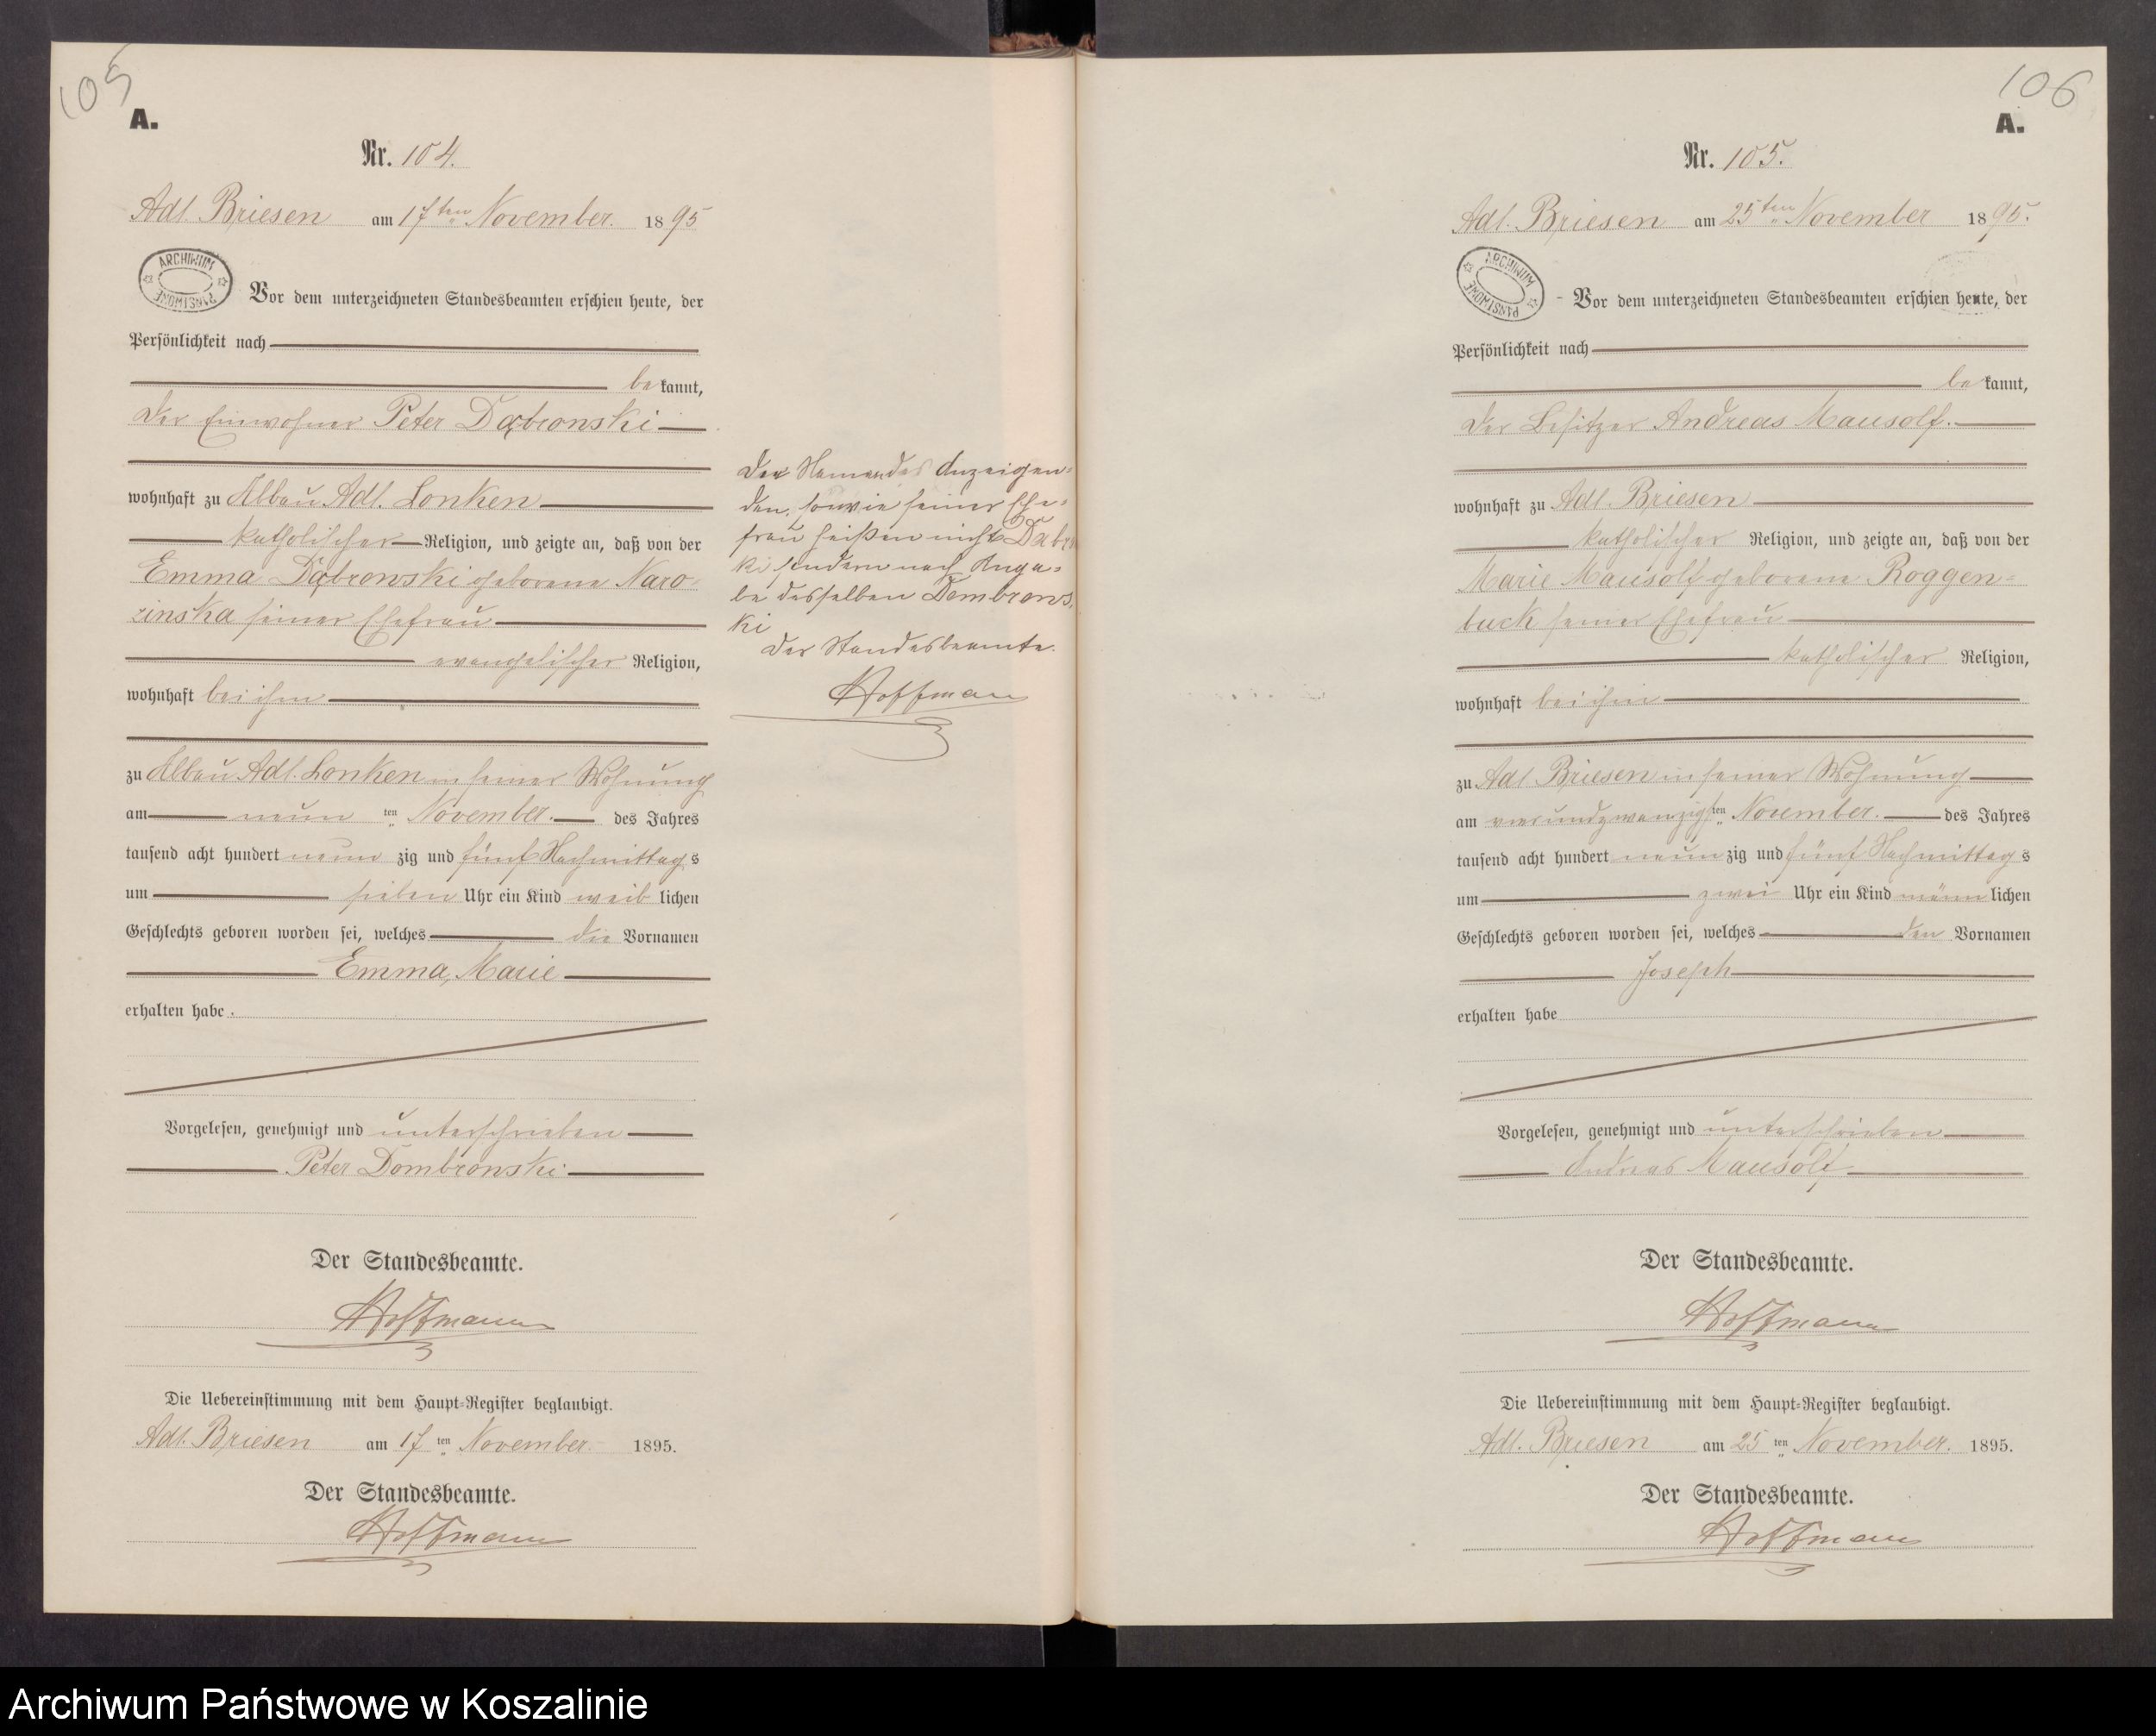 105
A.
Nr. 104.
Adl. Briesen am 17ten November. 1895
ARCHIWUM PAŃSTWOWE
Vor dem unterzeichneten Standesbeamten erschien heute, der
Persönlichkeit nach
bekannt,
der Einwohner Peter Dąbronski
wohnhaft zu Abbau Adl. Lonken
katholischer Religion, und zeigte an, daß von der
Emma Dąbrowski geborene Naro-
zinska seiner Ehefrau
evangelischer Religion,
wohnhaft bei ihm
zu Abbau Adl. Lonken in seiner Wohnung
am neunten November. des Jahres
tausend acht hundert neunzig und fünf Nachmittags
um sieben Uhr ein Kind weiblichen
Geschlechts geboren worden sei, welches die Vornamen
Emma, Marie
erhalten habe.
Vorgelesen, genehmigt und unterschrieben
Peter Dombronski
Der Standesbeamte.
Hoffmann
Die Uebereinstimmung mit dem Haupt-Register beglaubigt.
Adl. Briesen am 17ten November. 1895.
Der Standesbeamte.
Hoffmann
Der Name des Anzeigen-
den, sowie seiner Ehe-
frau heißen nicht Dabrow
ki sondern nach Anga-
be desselben Dombrows,
ki
Der Standesbeamte.
Hoffmann
106
A.
Nr. 105.
Adl. Briesen am 25ten November 1895.
ARCHIWUM PAŃSTWOWE
Vor dem unterzeichneten Standesbeamten erschien heute, der
Persönlichkeit nach
bekannt,
der Besitzer Andreas Mausolf.
wohnhaft zu Adl. Briesen
katholischer Religion, und zeigte an, daß von der
Marie Mausolf geborene Roggen-
buck seiner Ehefrau
katholischer Religion,
wohnhaft bei ihm
zu Adl. Briesen in seiner Wohnung
am vierundzwanzigsten November. des Jahres
tausend acht hundert neunzig und fünf Nachmittags
um zwei Uhr ein Kind männlichen
Geschlechts geboren worden sei, welches den Vornamen
Joseph
erhalten habe
Vorgelesen, genehmigt und unterschrieben
Andreas Mausolf
Der Standesbeamte.
Hoffmann
Die Uebereinstimmung mit dem Haupt-Register beglaubigt.
Adl. Briesen am 25ten November. 1895.
Der Standesbeamte.
Hoffmann
Archiwum Państwowe w Koszalinie